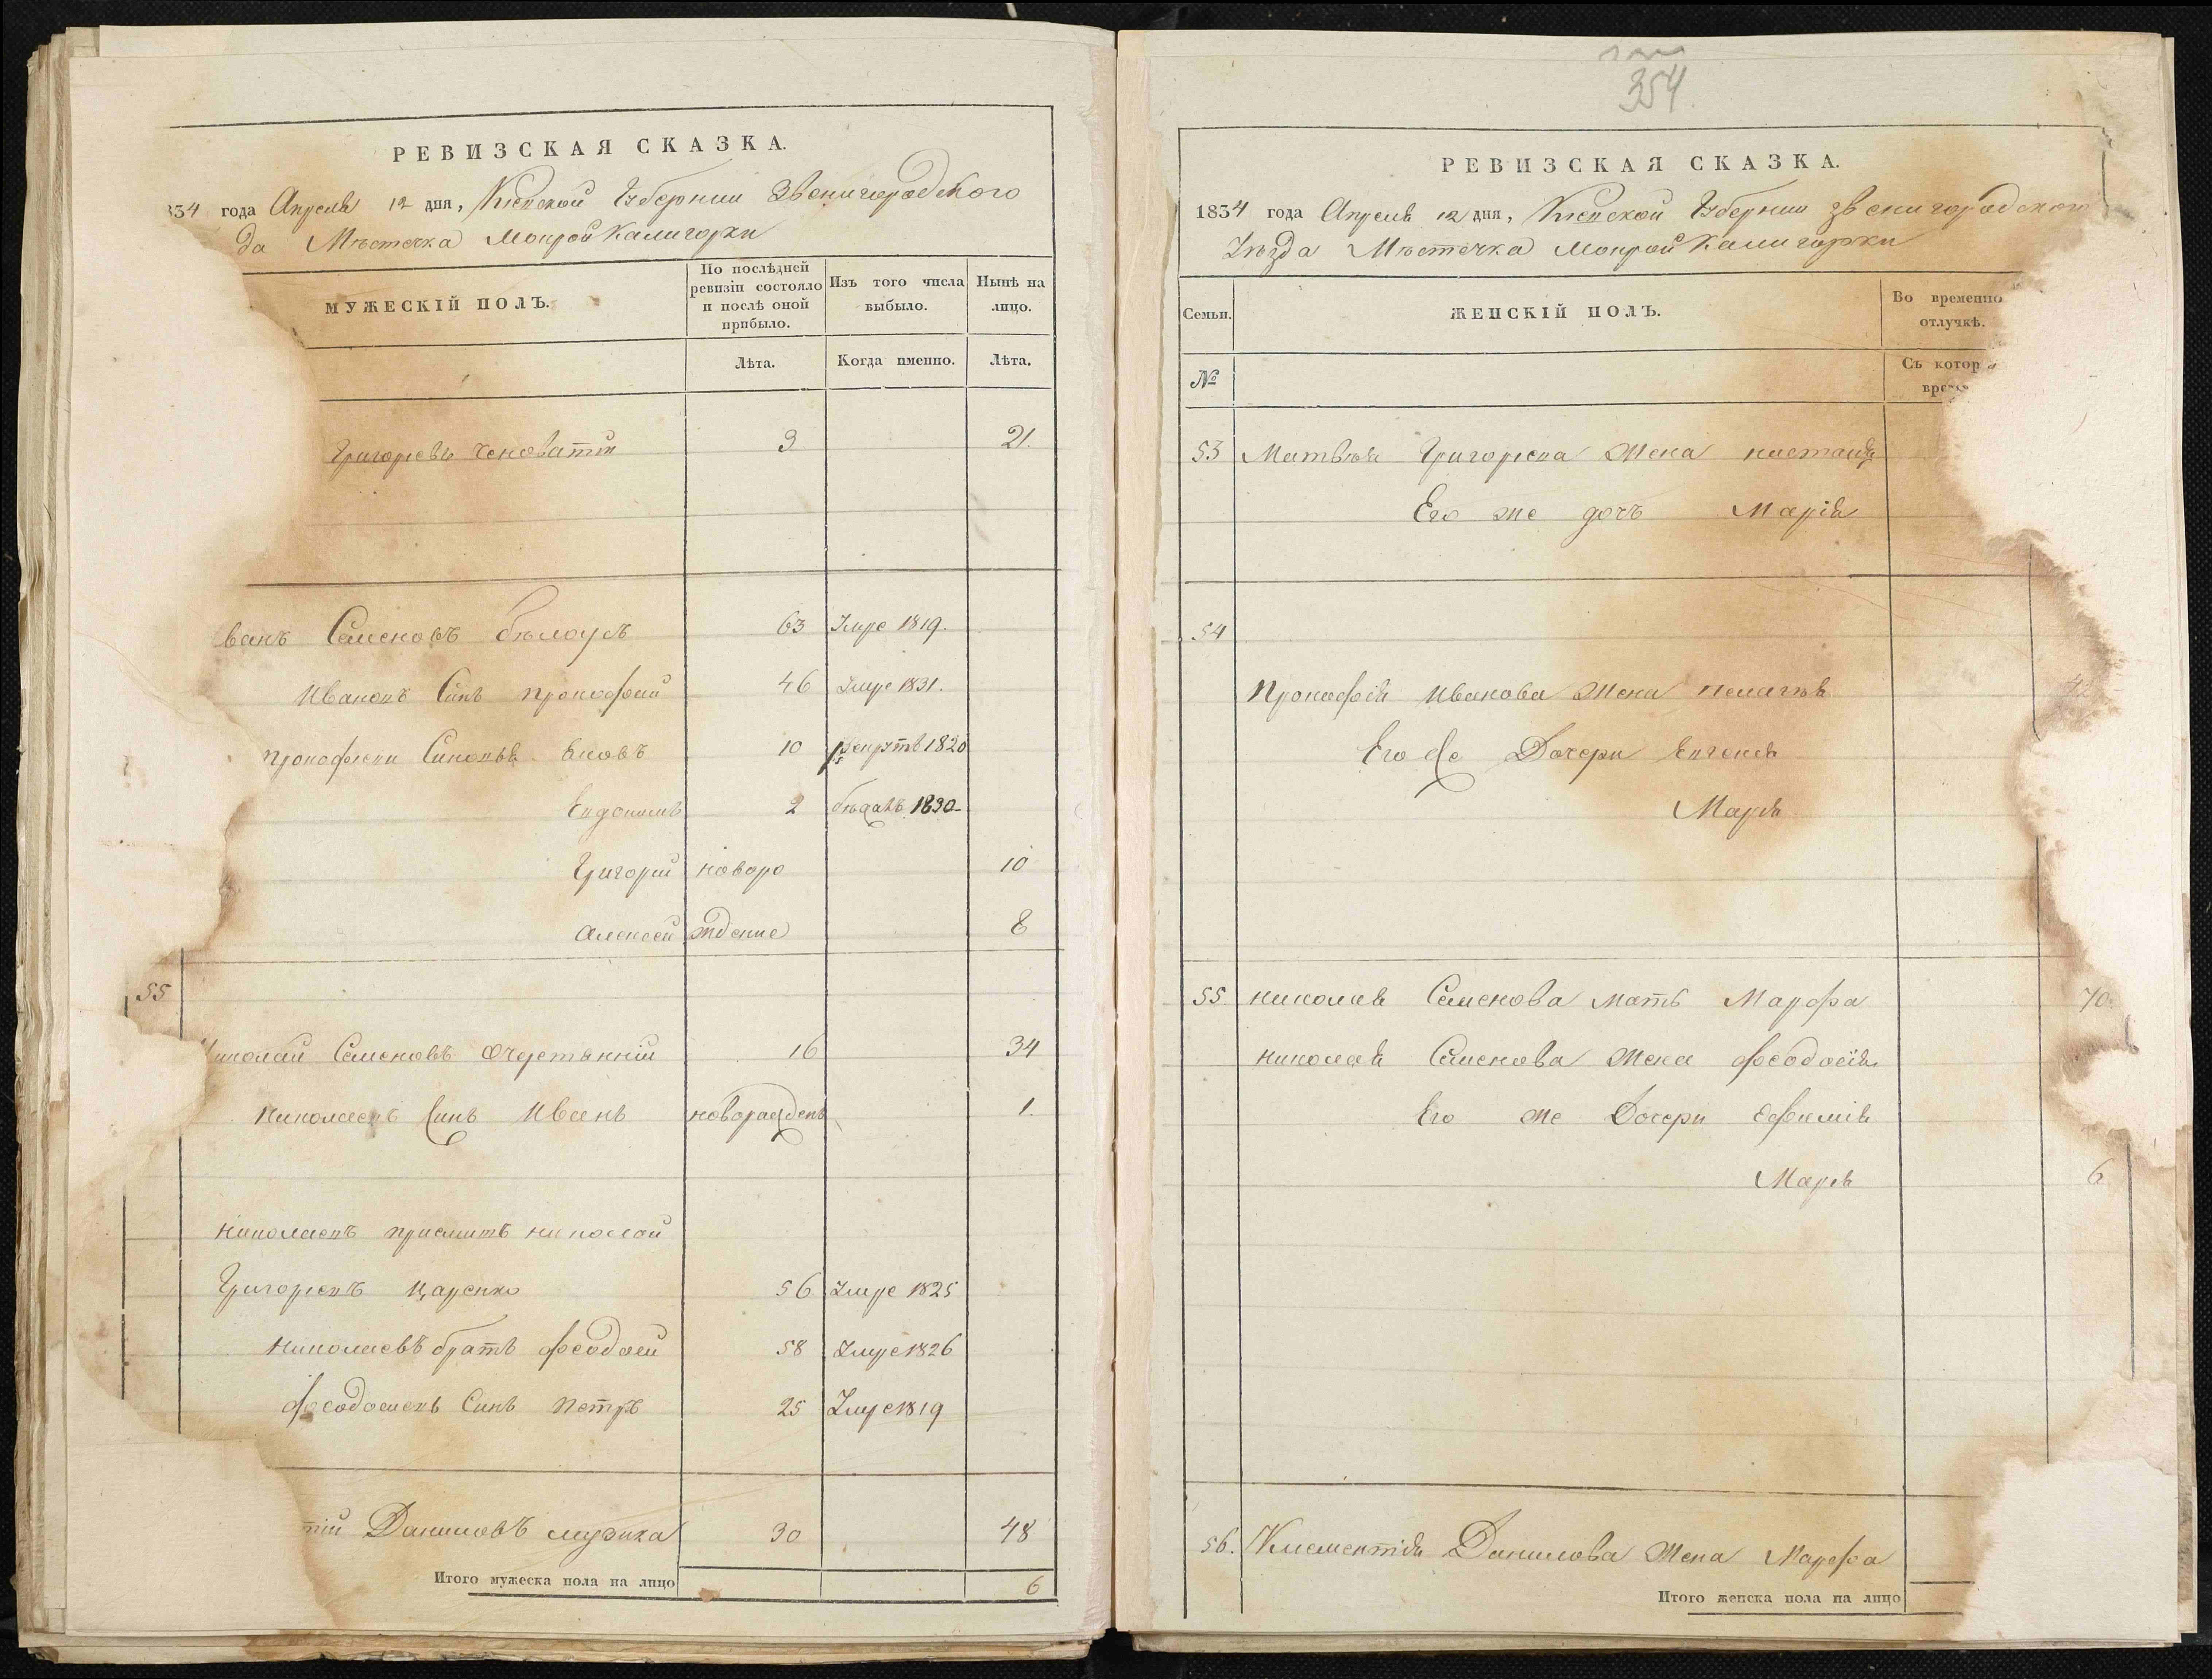 РЕВИЗСКАЯ СКАЗКА.
834 года Апреля 12 дня, Кіевской Губернии Звенигородского
да Мѣстечка Мокрой Калигорки
МУЖЕСКІЙ ПОЛЪ.
По послѣдней ревизіи состояло и послѣ оной прибыло.
Изъ того числа выбыло.
Нынѣ на лицо.
Лѣта.
Когда именно.
Лѣта.
Григорьевъ 3 21.
ванъ Семеновъ бѣлоусъ 63 Умре 1819.
Ивановъ Синъ прокофѣй 46 Умре 1831.
прокофиеви Синовья 10 1820
Евдокимъ 2 бѣжалъ 1830
Григорий новоро 10
Алексей ждение 8
55
Николай Семеновъ 16 34
Николаевъ Синъ Иванъ новорожденъ 1.
Николаевъ приемитъ николай
Григориевъ Царенко 56 Умре 1825
Николаевъ братъ феодосий 58 Умре 1826
феодосиевъ Синъ Петръ 25 Умре 1819
тій Даниловъ музика 30 48
Итого мужеска пола на лицо 6
354.
РЕВИЗСКАЯ СКАЗКА.
1834 года Апреля 12 дня, Кіевской Губернии звенигородског
Уѣзда Мѣстечка Мокрой Калигорки
Семьи.
ЖЕНСКІЙ ПОЛЪ.
Во временно
отлучкѣ.
№
Съ котор
вре
53 Матвѣя Григориева Жена настасия
Его же дочъ Марія
54
Прокофія Иванова Жена пелагѣя
Его же Дочери Евгения
Марія
55. николая Семенова мать Марфа 70.
николая Семенова Жена феодосія
Его же Дочери Ефимія
Марія 6
56. Клементія Данилова Жена Марфа
Итого женска пола на лицо